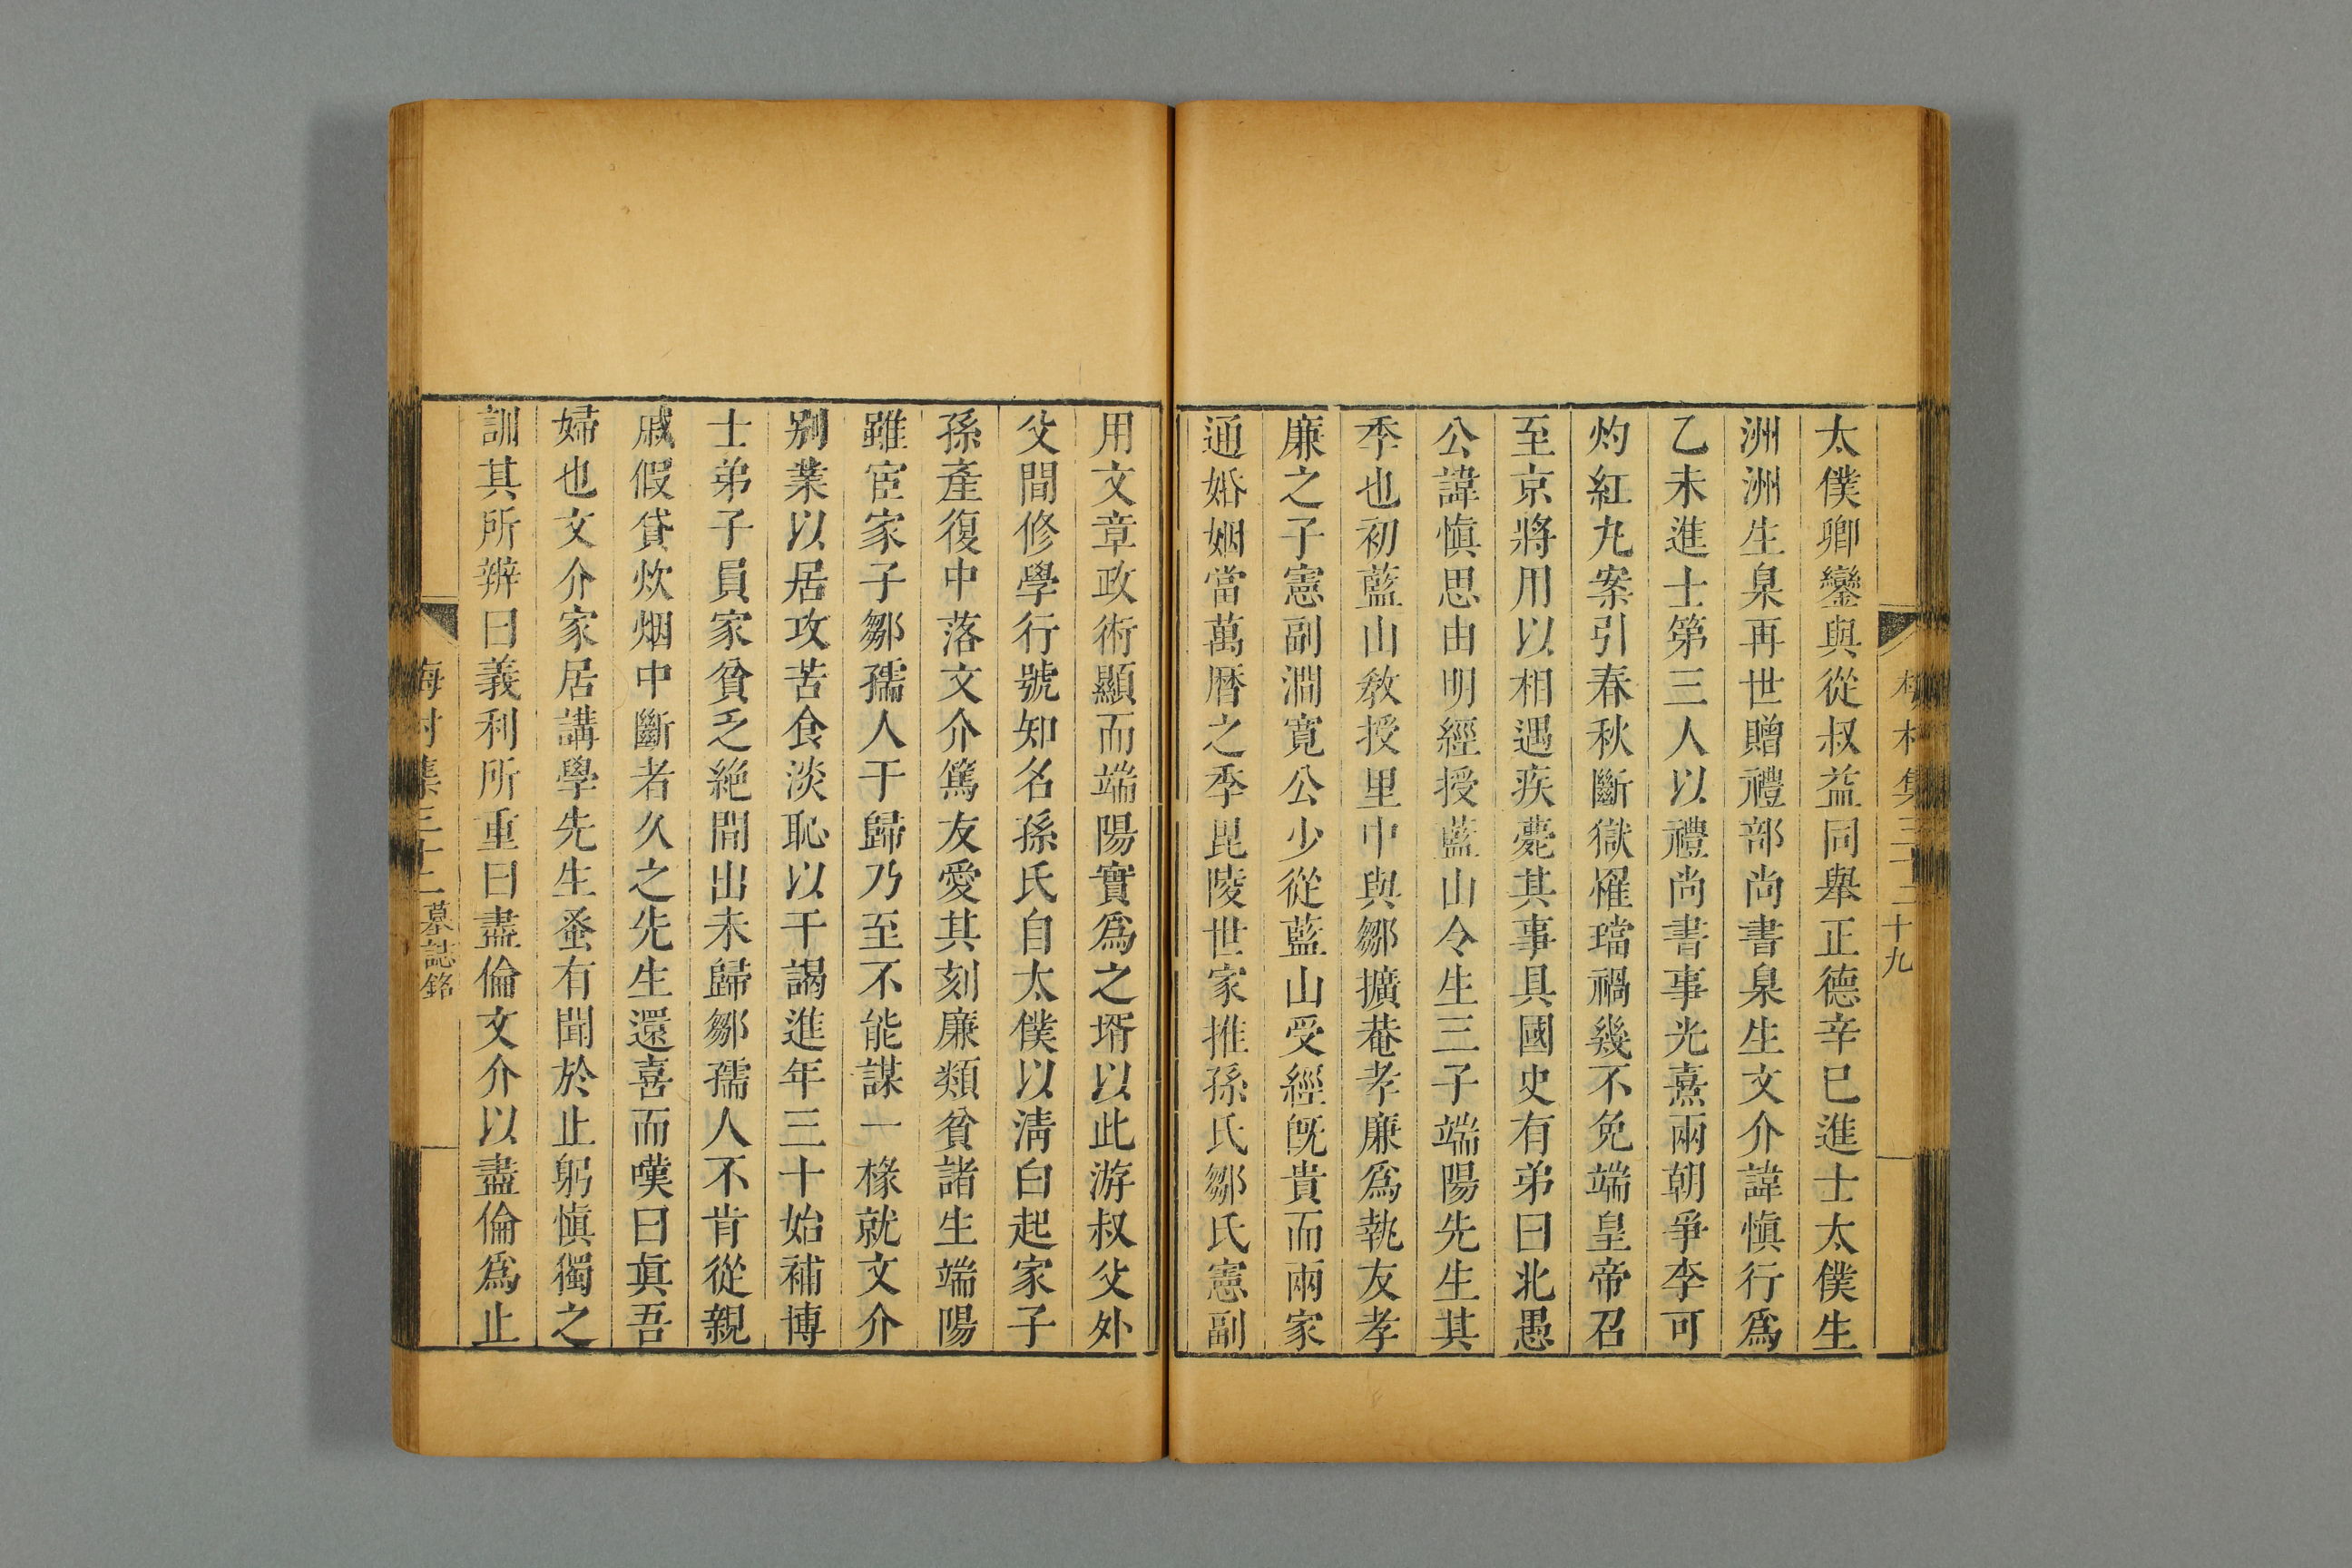 太僕卿鑾與從叔益同舉正德辛巳進士太僕生
洲洲生臬再世贈禮部尚書臬生文介諱愼行爲
乙未進士第三人以禮尚書事光熹兩朝爭李可
灼紅丸案引春秋斷獄罹璫禍幾不免端皇帝召
至京將用以相遇疾薨其事具國史有弟曰北愚
公諱愼思由明經授藍山令生三子端陽先生其
季也初藍山敎授里中與鄒擴菴孝廉爲執友孝
廉之子憲副澗寛公少從藍山受經旣貴而兩家
通婚姻當萬曆之季毘陵世家推孫氏鄒氏憲副
用文章政術顯而端陽實爲之壻以此游叔父外
父間修學行號知名孫氏自太僕以淸白起家子
孫產復中落文介篤友愛其刻廉類貧諸生端陽
雖宦家子鄒孺人于歸乃至不能謀一椽就文介
别業以居攻苦食淡恥以干謁進年三十始補博
士弟子員家貧乏絶間出未歸鄒孺人不肯從親
戚假貸炊烟中斷者久之先生還喜而嘆曰眞吾
婦也文介家居講學先生蚤有聞於止躬愼獨之
訓其所辨曰義利所重曰盡倫文介以盡倫爲止
梅村集三十二 墓誌銘